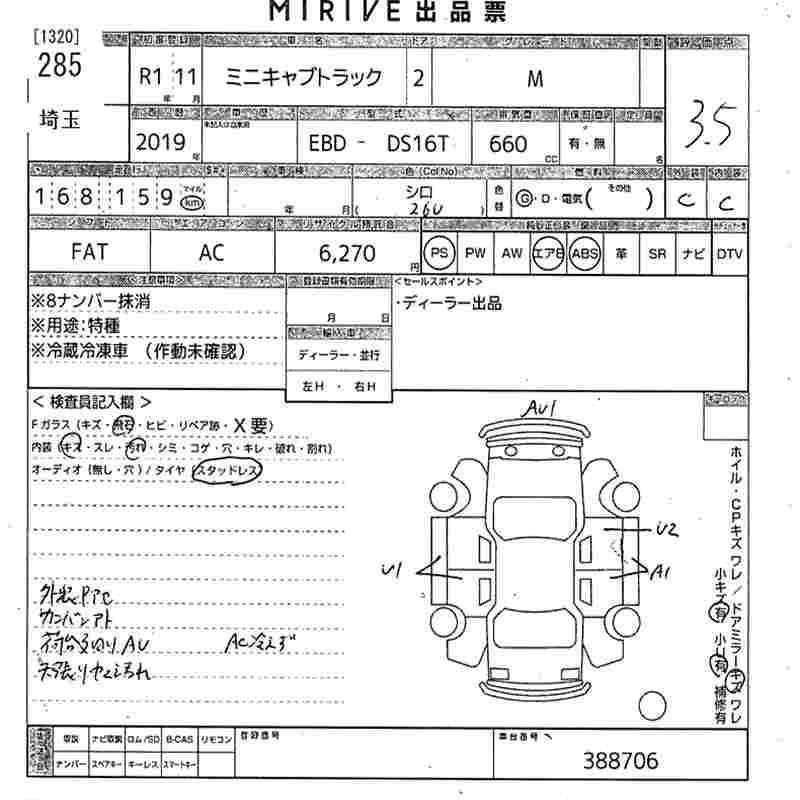 MIRIVE 出品票
[1320]
285
埼玉
初度登録 車名 ドア グレード 評価点
R1 11 ミニキャブトラック 2 M
年 月
3.5
車歴 型式 排気量
2019 EBD - DS16T 660 有・無
年 CC 名
走行 車検 色(Col No) 燃料 外装 内装
168,159 マイル km 年 月 シロ 色替 G・D・電気( その他 ) C C
( 26U )
シフト エアコン リサイクル預託金
FAT AC 6,270 円 PS PW AW エアB ABS 革 SR ナビ DTV
<注意事項> 登録書類有効期限 <セールスポイント>
※8ナンバー抹消 月 日 ・ディーラー出品
※用途:特種 輸入車
※冷蔵冷凍車 (作動未確認) ディーラー・並行
左H ・ 右H
< 検査員記入欄 >
Fガラス (キズ・飛石・ヒビ・リペア跡・X要)
内装 (キズ・スレ・汚れ・シミ・コゲ・穴・キレ・破れ・割れ)
オーディオ (無し・穴) / タイヤ (スタッドレス)
AU1
U2
U1
A1
外装PアC
カンバンアト
AU AC冷えず
ホイル・CPキズ ワレ / ドアミラーキズ ワレ
小キズ有 小U有 補修有
取説 ナビ取説 ロム/SD B-CAS リモコン 登録番号 車台番号
ナンバー スペアキー キーレス スマートキー 388706